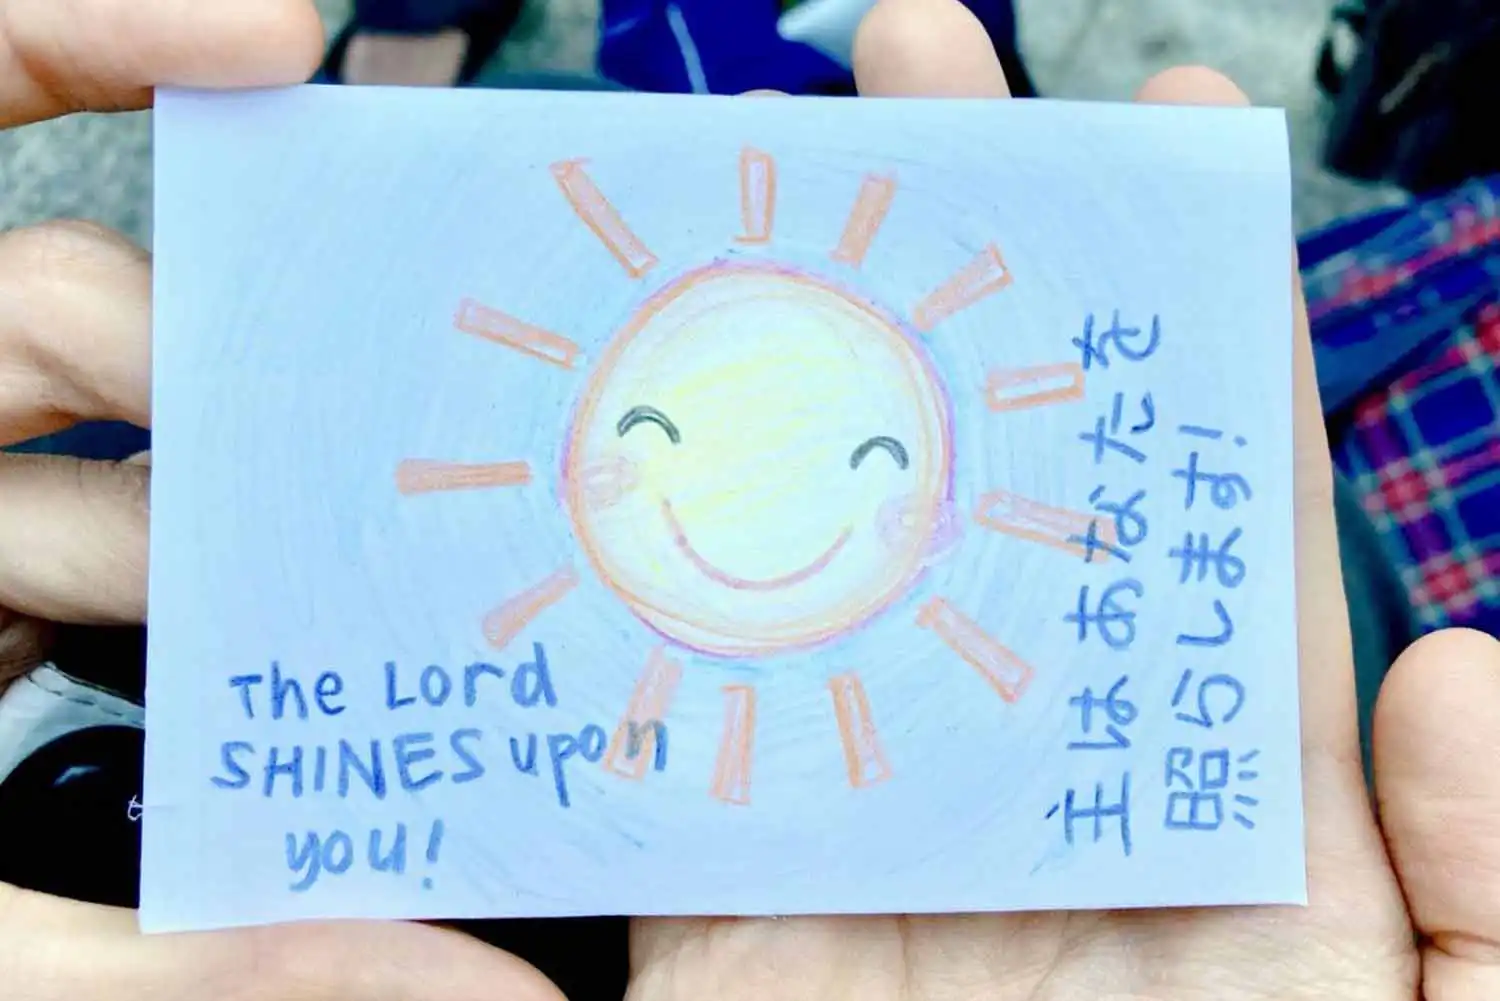 The Lord
SHINES upon
you!
主はあなたを
照らします!